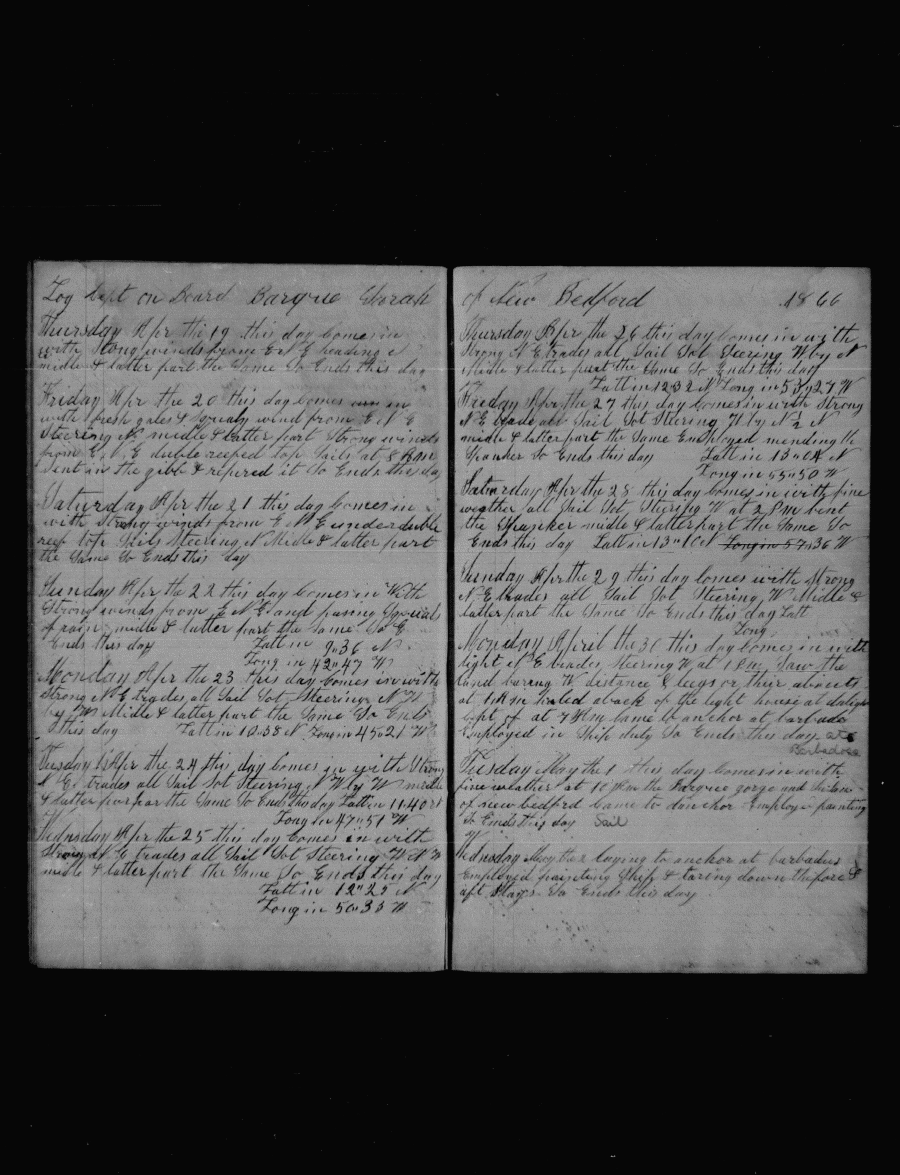 Log kept on Board Barque Sorah
Thursday Apr th 19 this day Comes in
with Stong winds frome E N E heading N
midle & latter part the Same So Ends this day
Friday Apr the 20 this day comes in
with fresh gales & Squaly wind from E N E
Steering N midle & latter part Strong winds
from E N E duble reeped top Sails at 8
Sent in the gibb & repered it So Ends this day
Saturday Apr the 21 this day Comes in
with Strong winds from E N E under duble
reep top Sails Steering N Midle & latter part
the Same So Ends this day
Sunday Apr the 22 this day Comes in With
Strong winds from E N E and passing Squals
of rain midle & latter part the Same So E
Ends this day Latt in 9"36 N
Long in 42"47 W
Monday Apr the 23 this day Comes in with
strong N E trades all Sail Sot Steering N W
by W Midle & latter part the Same So Ends
this day Latt in 10"38 N Long in 45"21 W
Tuesday Apr the 24 this day Comes in with Strong
N E trades all Sail Sot Steering W by W midle
& latter part the Same So Ends this day Latt in 11"40 N
Long in 47"51 W
Wednsday Apr the 25 this day Comes in with
Strong N E trades all Sail Sot Steering W N W
midle & latter part the Same So Ends this day
Latt in 12"25 N
Long in 50"33 W
of New Bedford 1866
Thursday Apr the 26 this day Comes in with
Strong N E trades all Sail Sot Steering W by N
Midle & latter part the Same So Ends this day
Latt in 12"32 N Long in 53"27 W
Friday Apr the 27 this day Comes in with Strong
N E trades all Sail Sot Steering W by N ½ N
midle & latter part the Same Employed mending the
Spanker So Ends this day Latt in 13"04 N
Long in 55"50 W
Saturday Apr the 28 this day Comes in with fine
weather all Sail Sot Steering W at 2 P m bent
the Spanker midle & latter part the Same So
Ends this day Latt in 13"10 N Long in 57"36 W
Sunday Apr the 29 this day Comes with Strong
N E trades all Sail Sot Steering W Midle &
latter part the Same So Ends this day Latt
Long
Monday April the 30 this day Comes in with
light N E trades Steering W at 1 P m Saw the
land baring W distance 8 leegs or thier abouts
at 1 A m haled aback of the light house at dalight
kept of at 7 A m Came to anchor at barbados
Employed in Ship duty So Ends this day at
Barbadoes
Tuesday May the 1 this day Comes in with
fine weather at 10 A m the Barque gorge and Susan
of new bedford Came to anchor Employ painting
So Ends this day Sail
W
Wednsday May the 2 laying to anchor at barbadus
Employed painting Ship & taring down the fore &
aft Stays So Ends this day